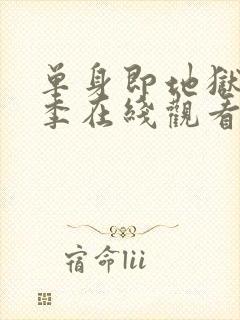 单身即地獄
季在綫觀看
宿命lii